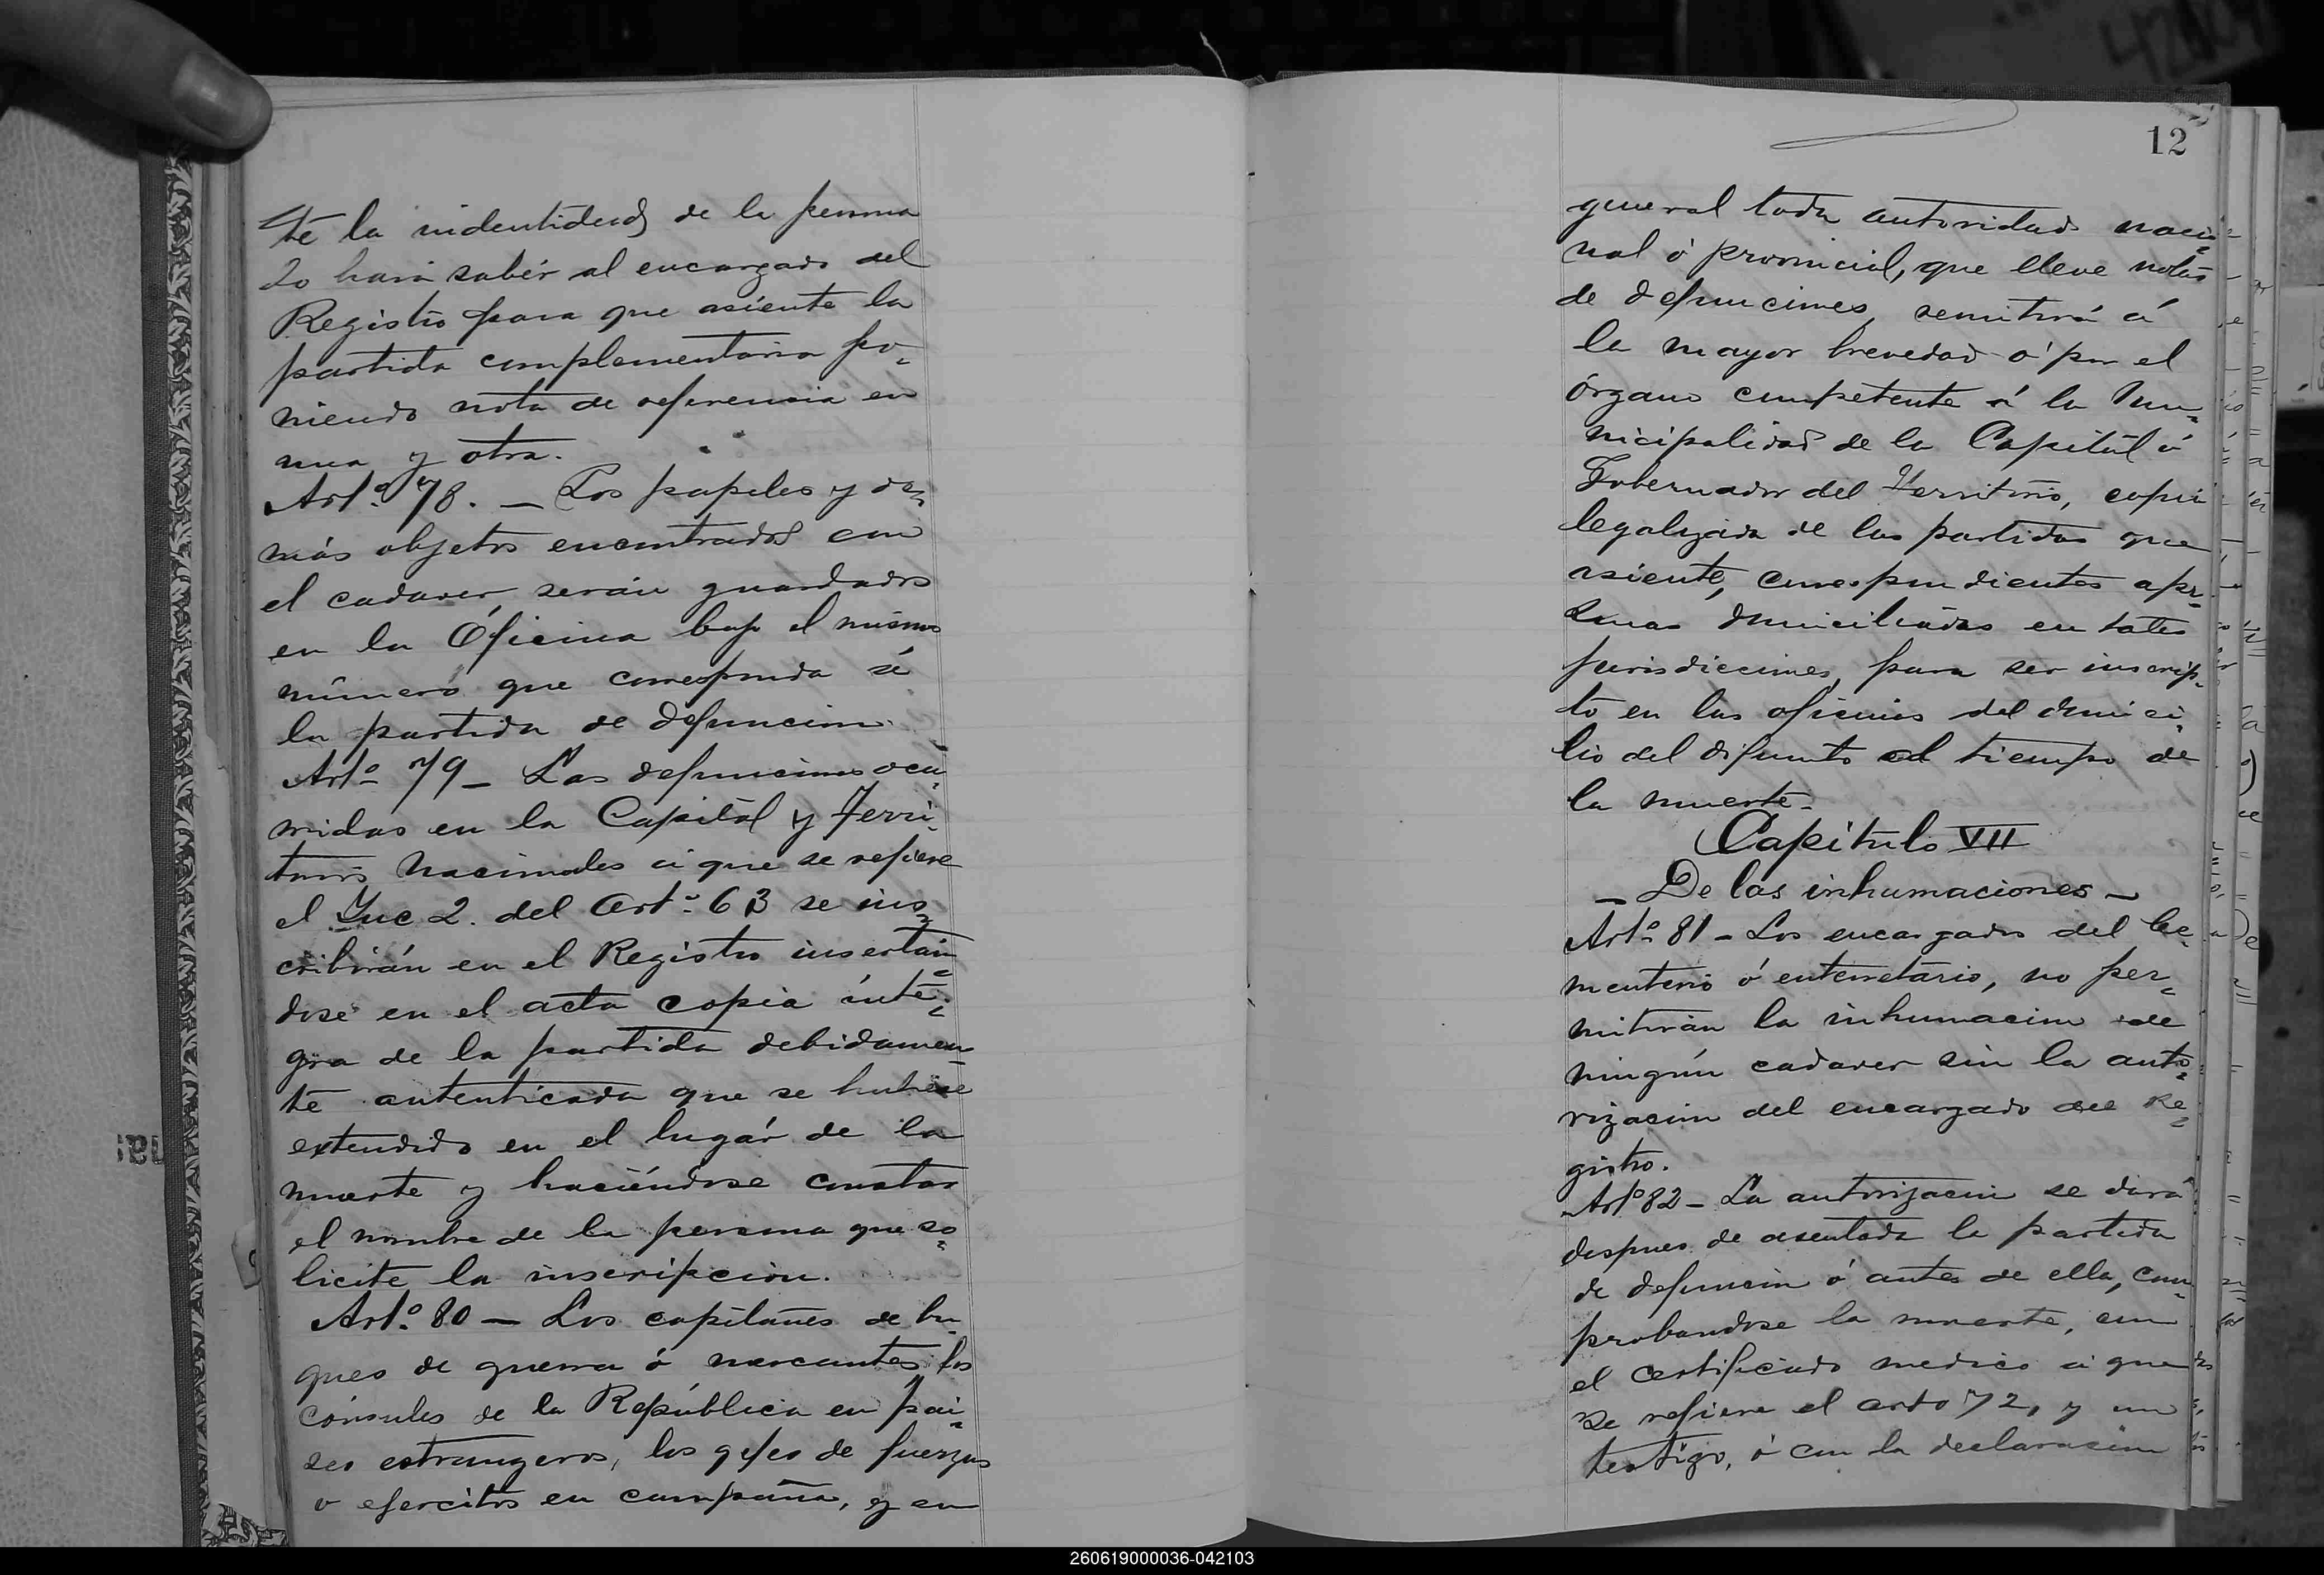 te la indentidad de la persona
lo hará sabér al encargado del
Registro para que asiente la
partida complementaria po-
niendo nota de referencia en
una y otra.
Artº 78. — Los papeles y de-
más objetos encontrados con
el cadaver, serán guardados
en la Oficina bajo el mismo
número que corresponda á
la partida de defuncion.
Artº 79 — Las defunciones ocu-
rridas en la Capital y Terri-
torios Nacionales á que se refiere
el Inc 2. del Artº 63 se ins-
cribirán en el Registro insertán-
dose en el acta copia ínte-
gra de la partida debidamen-
te autenticada que se hubiese
extendido en el lugár de la
muerte y haciéndose constar
el nombre de la persona que so-
licite la inscripcion.
Artº 80 — Los capitanes de bu-
ques de guerra ó mercantes, los
cónsules de la República en pai-
ses estrangeros, los gefes de fuerzas
o ejercitos en campaña, y en
12
general toda autoridad nacio-
nal ó provincial, que lleve notas
de defunciones, remitirá á
la mayor brevedad ó por el
órgano competente á la Mu-
nicipalidad de la Capital ó
Gobernador del Territorio, copia
legalizada de las partidas que
asiente, correspondientes a per-
sonas domiciliadas en tales
jurisdicciones, para ser inscrip-
to en las oficinas del domici-
lio del difunto al tiempo de
la muerte.
Capítulo VII
— De las inhumaciones —
Artº 81 — Los encargados del Ce-
menterio ó enterratario, no per-
mitirán la inhumacion de
ningún cadaver sin la auto-
rizacion del encargado del Re-
gistro.
Artº 82 — La autorizacion se dará
despues de asentada la partida
de defuncion ó antes de ella, com-
probandose la muerte, con
el certificado medico á que
se refiere el arto 72, y un
testigo, ó con la declaracion
260619000036-042103